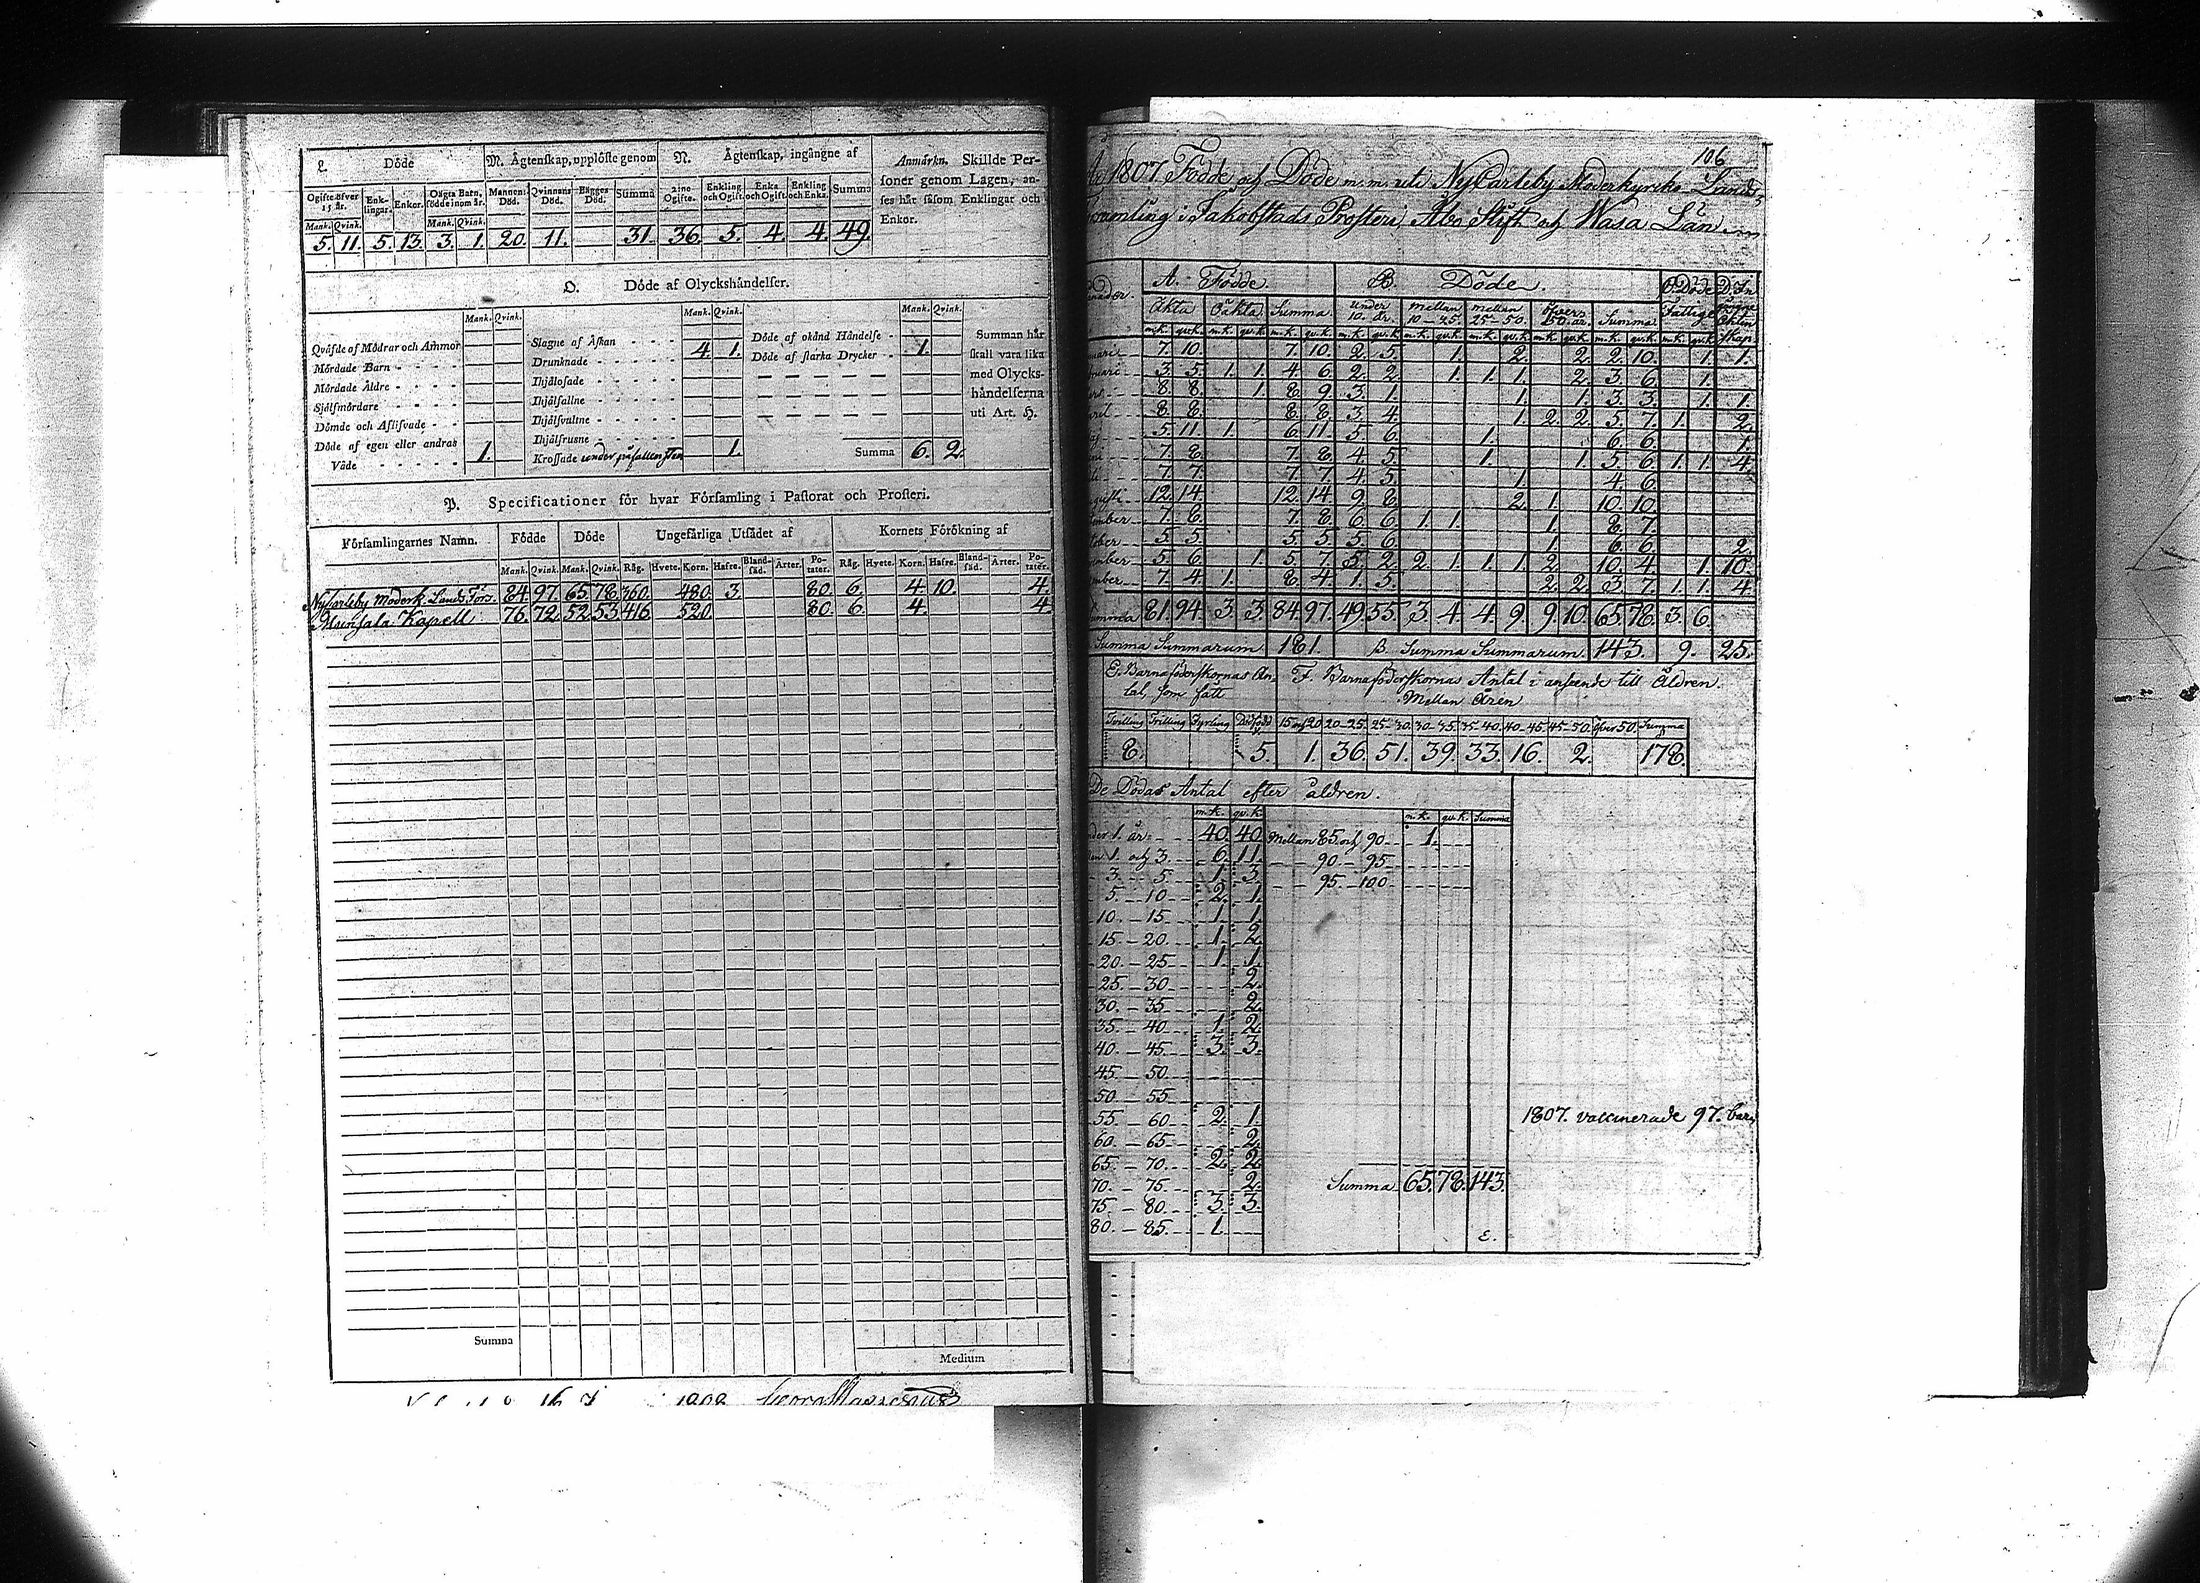 L. Döde
M. Ägtenskap, upplöste genom
N. Ägtenskap, ingångne af
Anmärkn. Skillde Personer genom Lagen, anses här såsom Enklingar och Enkor.
Ogifte öfver 15 år. Enklingar. Enkor. Oägta Barn, födde inom år. Mannens Död. Qvinnans Död. Bägges Död. Summa 2:ne Ogifte. Enkling och Ogift. Enka och Ogift. Enkling och Enka. Summa
Mank. Qvink. Mank. Qvink.
5. 11. 5. 13. 3. 1. 20. 11. 31. 36. 5. 4. 4. 49.
O. Döde af Olyckshändelser.
Mank. Qvink. Mank. Qvink. Mank. Qvink.
Qväfde af Mödrar och Ammor
Mördade Barn
Mördade Äldre
Sjelfmördare
Dömde och Aflifvade
Döde af egen eller andras Våde 1.
Slagne af Åskan
Drunknade 4. 1.
Ihjälosade
Ihjälfallne
Ihjälsvultne
Ihjälfrusne
Krossade under påfallen sten 1.
Döde af okänd Händelse
Döde af starka Drycker 1.
Summa 6. 2.
Summan här skall vara lika med Olyckshändelserna uti Art. H.
P. Specificationer för hvar Församling i Pastorat och Prosteri.
Församlingarnes Namn. Födde Döde Ungefärliga Utsädet af Kornets Förökning af
Mank. Qvink. Mank. Qvink. Råg. Hvete. Korn. Hafre. Blandsäd. Ärter. Potater. Råg. Hvete. Korn. Hafre. Blandsäd. Ärter. Potater.
NyCarleby Moderk. Lands Förs. 84 97. 65 78. 360. 480. 3. 80. 6. 4. 10. 4.
Munsala Kapell 76. 72. 52. 53. 416. 520. 80. 6. 4. 4
Summa
Medium
1808
106
1807 Födde och Döde m.m. uti NyCarleby Moderkyrko Lands
församling i Jakobstads Prosteri, Åbo Stift och Wasa Län
A. Födde B. Döde. C. Döde Fattige
Äkta Oäkta Summa under 10. år. mellan 10 25. mellan 25 50. öfver 50. år. Summa
m.k. qv.k. m.k. qv.k. m.k. qv.k. m.k. qv.k. m.k. qv.k. m.k. qv.k. m.k. qv.k. m.k. qv.k. m.k. qv.k.
7. 10. 7. 10. 2. 5. 1. 2. 2. 2. 10. 1. 1.
3. 5. 1. 1. 4. 6. 2. 2. 1. 1. 1. 2. 3. 6. 1.
8. 8. 1. 8. 9. 3. 1. 1. 1. 3. 3. 1. 1.
8. 8. 8. 8. 3. 4. 1. 2. 2. 5. 7. 1. 2.
5. 11. 1. 6. 11. 5. 6. 1. 6. 6. 1.
7. 8. 7. 8. 4. 5. 1. 1. 5. 6. 1. 1. 4.
7. 7. 7. 7. 4. 5. 1. 4. 6.
12. 14. 12. 14. 9. 8. 2. 1. 10. 10.
7. 8. 7. 8. 6. 6. 1. 1. 1. 8. 7.
5. 5. 5. 5. 5. 6. 1. 6. 6. 2.
5. 6. 1. 5. 7. 5. 2. 2. 1. 1. 1. 2. 10. 4. 1. 10.
7. 4. 1. 8. 4. 1. 5. 2. 2. 3. 7. 1. 1. 4.
Summa 81. 94. 3. 3. 84. 97. 49. 55. 3. 4. 4. 9. 9. 10. 65. 78. 3. 6.
Summa Summarum 181. B. Summa Summarum 143. 9. 25.
E. Barnaföderskornas Antal, som fått
F. Barnaföderskornas Antal i anseende till Åldren. Mellan Åren
Tvilling Trilling Fyrling Dödfödd 15 och 20 20-25. 25-30. 30-35. 35-40. 40-45. 45-50. öfver 50. Summa
8. 5. 1. 36. 51. 39. 33. 16. 2. 178.
De Dödas Antal efter åldren.
m.k. qv.k. m.k. qv.k. Summa
under 1. år 40. 40. Mellan 85. och 90 1.
1. och 3. 6. 11. 90 - 95
3. - 5. 1. 3. 95 - 100
5. - 10. 2. 1.
10. - 15. 1. 1.
15. - 20. 1. 2.
20. - 25 1. 1.
25. - 30 2.
30. - 35 2.
35. - 40 1. 2.
40. - 45. 3. 3.
45. - 50.
50. - 55
55. - 60 2. 1.
60. - 65. 2.
65. - 70. 2. 2.
70. - 75 2.
75. - 80. 3. 3.
80. - 85. 1.
1807. vaccinerade 97. barn
Summa 65. 78. 143.